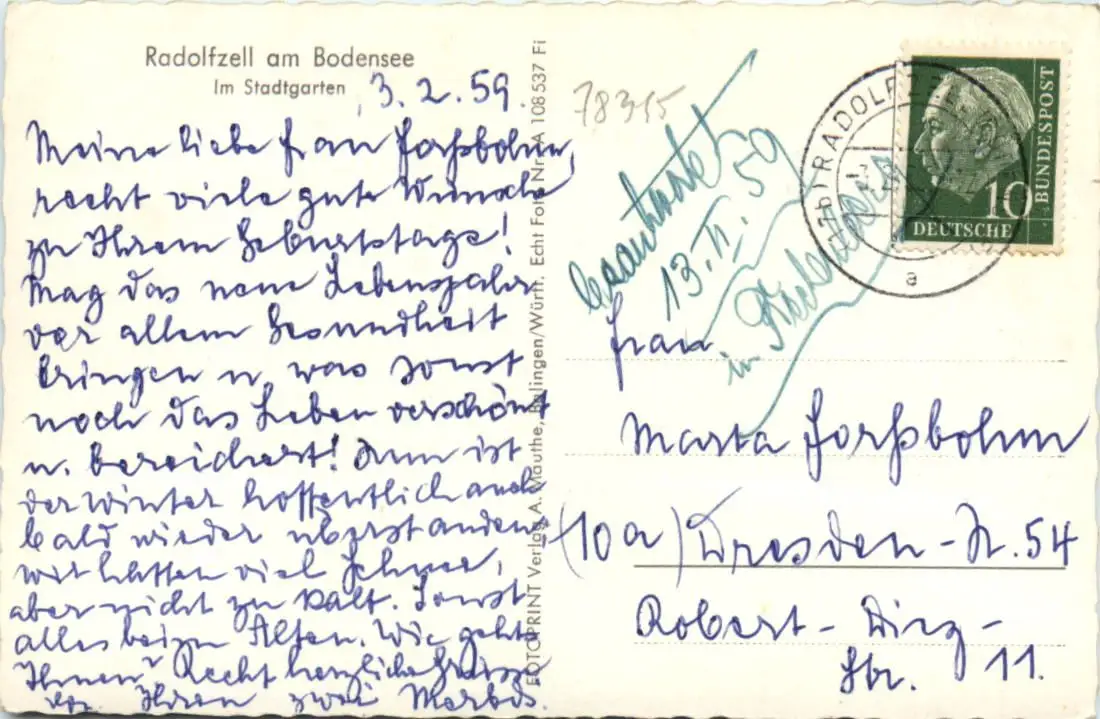 Radolfzell am Bodensee
Im Stadtgarten
3. 2. 59.
Meine liebe Frau Forßbohm,
recht viele gute Wünsche
zu Ihrem Geburtstage!
Mag das neue Lebensjahr
vor allem Gesundheit
bringen u. was sonst
noch das Leben verschönt
u. bereichert! Nun ist
der Winter hoffentlich auch
bald wieder überstanden,
wir hatten viel Schnee,
aber nicht zu kalt. Sonst
alles beim Alten. Wie geht's
Ihnen? Recht herzliche Grüsse
von Ihren zwei
FOTOPRINT Verlag A. Mauthe, Balingen/Württ. Echt Foto Nr. A 108 537 Fi
78315
beantwortet
13. II. 59
in
RADOLFZELL
a
DEUTSCHE
BUNDESPOST
10
Frau
Marta Forßbohm
(10a) Dresden-N. 54
Robert-Diez-
Str. 11.